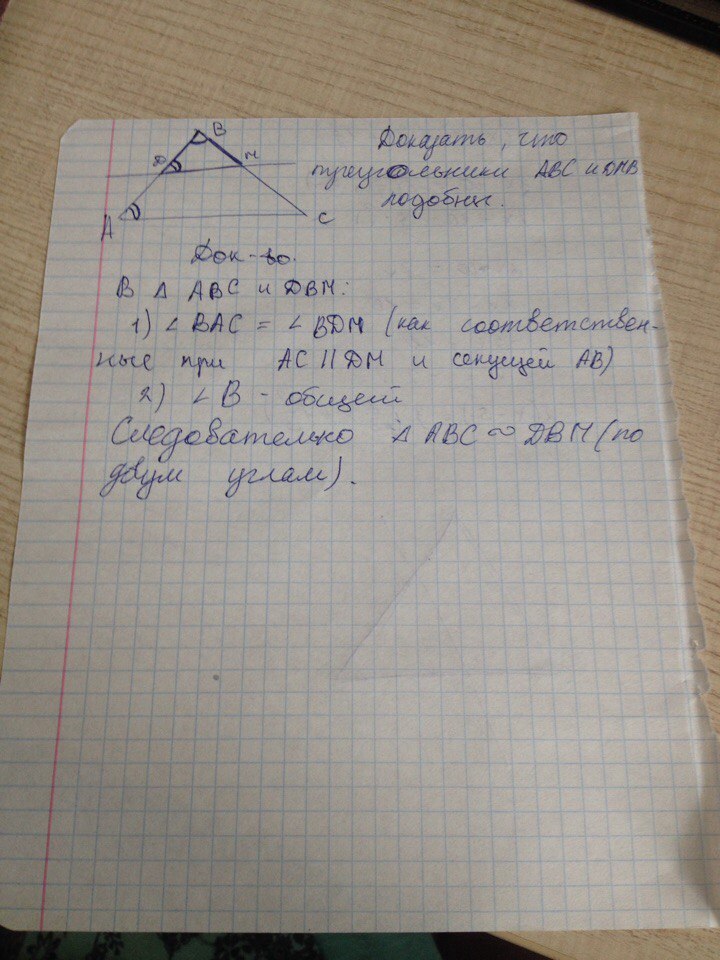 B
D
M
A
C
Доказать, что
треугольники ABC и DMB
подобны.
Док-во.
В Δ ABC и DBM:
1) ∠BAC = ∠BDM (как соответствен-
ные при AC || DM и секущей AB)
2) ∠B - общий
Следовательно Δ ABC ~ DBM (по
двум углам).